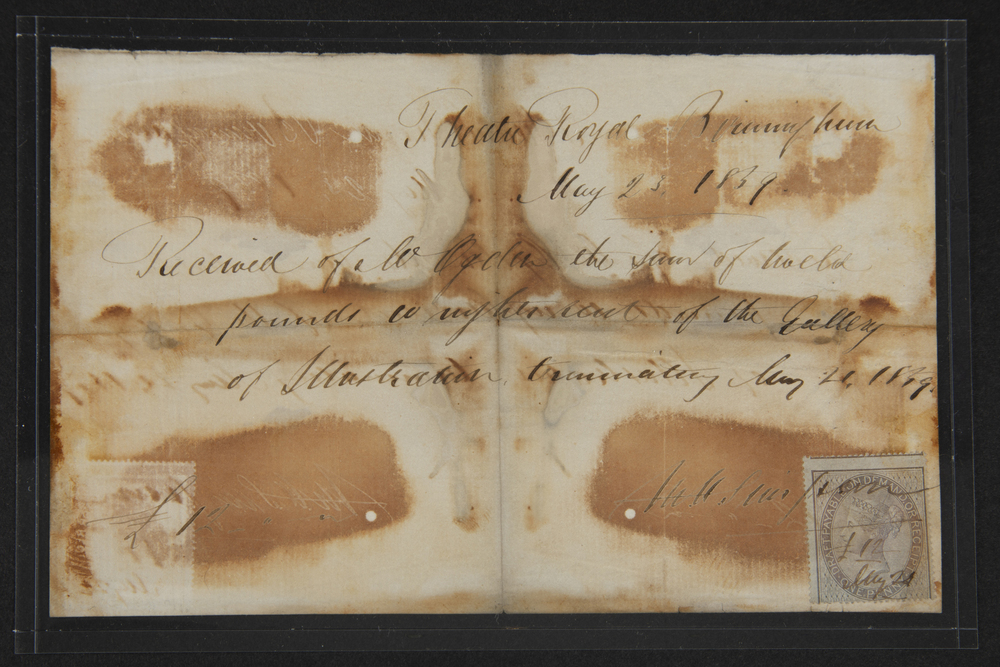 Theatre Royal Birmingham
May 23 1859.
Received of Mr Ogden the sum of twelve
pounds a nights rent of the Gallery
of Illustration, terminating May 21, 1859.
£ 12
DRAFT PAYABLE ON DEMAND OR RECEIPT
£12
May 21
ONE PENNY